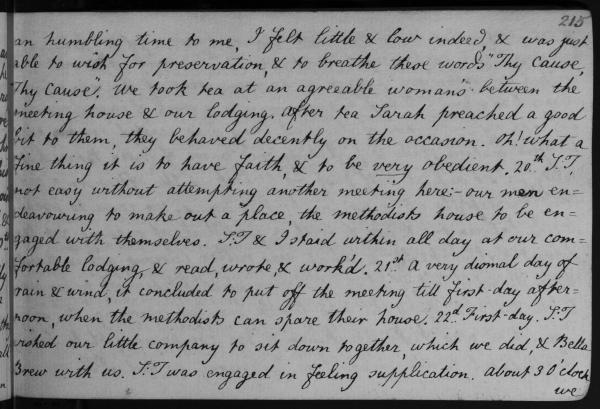 215
an humbling time to me, I felt little & low indeed, & was just
able to wish for preservation, & to breathe these words "Thy Cause,
Thy Cause". We took tea at an agreeable woman's between the
meeting house & our lodging. after tea Sarah preached a good
bit to them, they behaved decently on the occasion. Oh! what a
fine thing it is to have faith, & to be very obedient. 20.th S.T,
not easy without attempting another meeting here:- our men en=
deavouring to make out a place, the methodists house to be en=
gaged with themselves. S.T & I staid within all day at our com=
fortable lodging, & read, wrote, & work'd. 21.st a very dismal day of
rain & wind, it concluded to put off the meeting till first-day after=
noon, when the methodists can spare their house. 22.d First-day. S.T
wished our little company to sit down together, which we did, & Bella
Brew with us. S.T was engaged in feeling supplication. about 3 O'clock
we